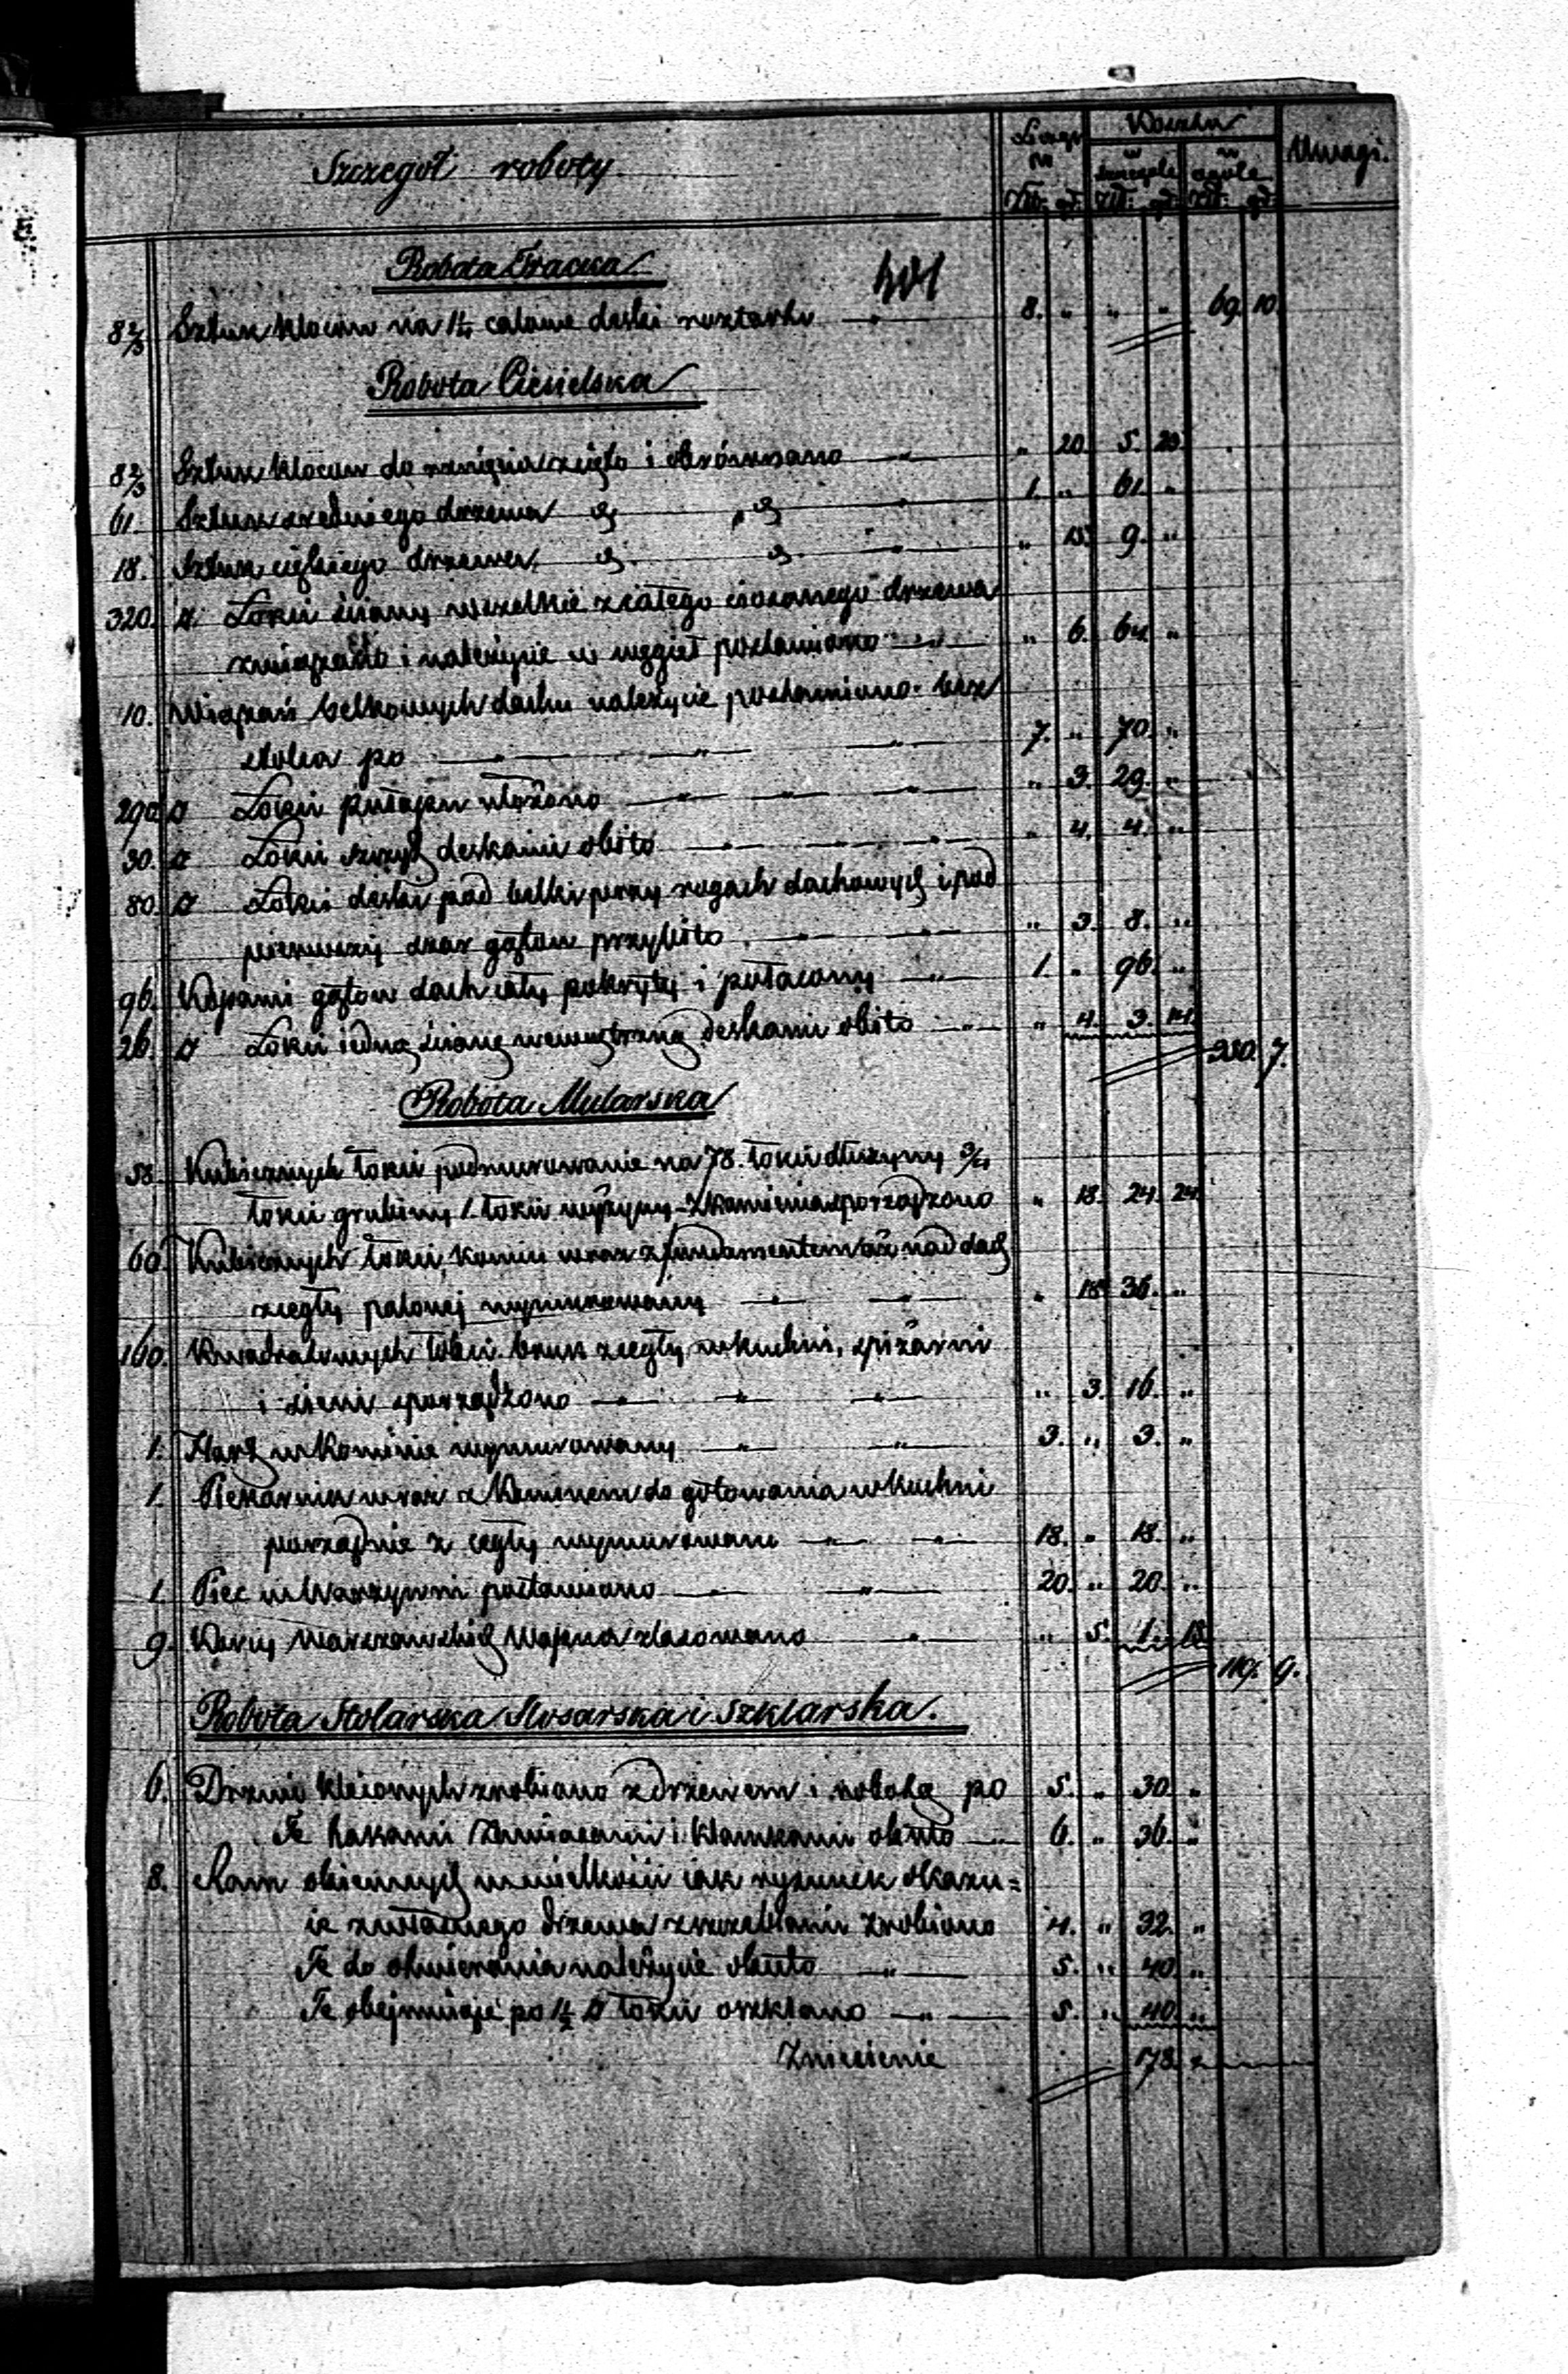 Szczegoł roboty
w szczególe
w ogule
Uwagi.
Złt: gr: Złt: gr: Złt: gr:
Robota Tracka
401
8⅔ Sztuk klocow na 1¼ calowe deski roztarto — 8. " " " 69. 10.
Robota Ciesielska
8⅔ Sztuk klocow do rznięcia ścięto i obrównano — " 20. 5. 23.
61. Sztuk średniego drzewa — 1. " 61. "
18. Sztuk cięßkiego drzewa — " 15. 9. "
320. □ Łokci ściany wszelkie z całego ciosanego drzewa
związano i należycie w węgieł postawiono — " 6. 64. "
10. Wiązań belkowych dachu należycie postawiono bez
stolca po — 7. " 70. "
290 □ Łokci pułapu ułożono — " 3. 29. "
30. □ Łokci szczyt deskami obito — " 4. 4. "
80. □ Łokci deski pod belki przy rogach dachowych i pod
pierwszy szar gątow przybito — " 3. 8. "
96. Kopami gątow dach cały pokryty i połacony — 1. " 96. "
26. □ Łokci iedną ścianę wewnętrzną deskami obito — " 4. 3. 14.
350. 7.
Robota Mularska
58. Kubicznych łokci podmurowanie na 78. łokci dłużyny ¾
łokci grubiny 1. łokci wyżyny z kamienia sporządzono " 18. 24. 24.
60. Kubicznych łokci komin wraz z fundamentem aż nad dach
z cegły paloney wymurowany — " 18. 36. "
160. Kwadratowych łokci bruk z cegły w kuchni, spiżarni
i sieni sporządzono — " 3. 16. "
1. w kominie wymurowany — 3. " 3. "
1. Piekarnia wraz z kominem do gotowania w kuchni
porządnie z cegły wymurowane — 18. " 18. "
1. Piec postawiono — 20. " 20. "
9. Warszawskich Wapna zlasowano — " 5. 1. 15.
119. 9.
Robota Stolarska Slosarska i Szklarska.
6. Drzwi kleionych zrobiono z drzewem i robotą po 5. " 30. "
Te hakami zawiasami i klamkami okuto — 6. " 36. "
8. Ram okiennych w wielkości iak rysunek okazu=
ie drzewa zrobiono 4. " 32. "
Te do otwierania należycie okuto — 5. " 40. "
Te obejmuiące po 1½ □ łokci oszklono — 5. " 40. "
Zniesienie 178. "